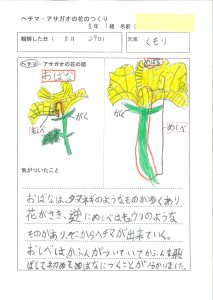 ヘチマ・アサガオの花のつくり
5年 1組 名前(
観察した日( 8月 29日)
天気 くもり
ヘチマ・アサガオの花の図
おばな
おしべ
がく
めしべ
気がついたこと
おばなは、タマネギのようなものが多くあり
花がさき、逆にめしべはキュウリのような
ものがあり、そこからヘチマが出来ていく。
おしべはかふんがついていてかふんを飛
ばして初めてめばなにつくことが分かりました。